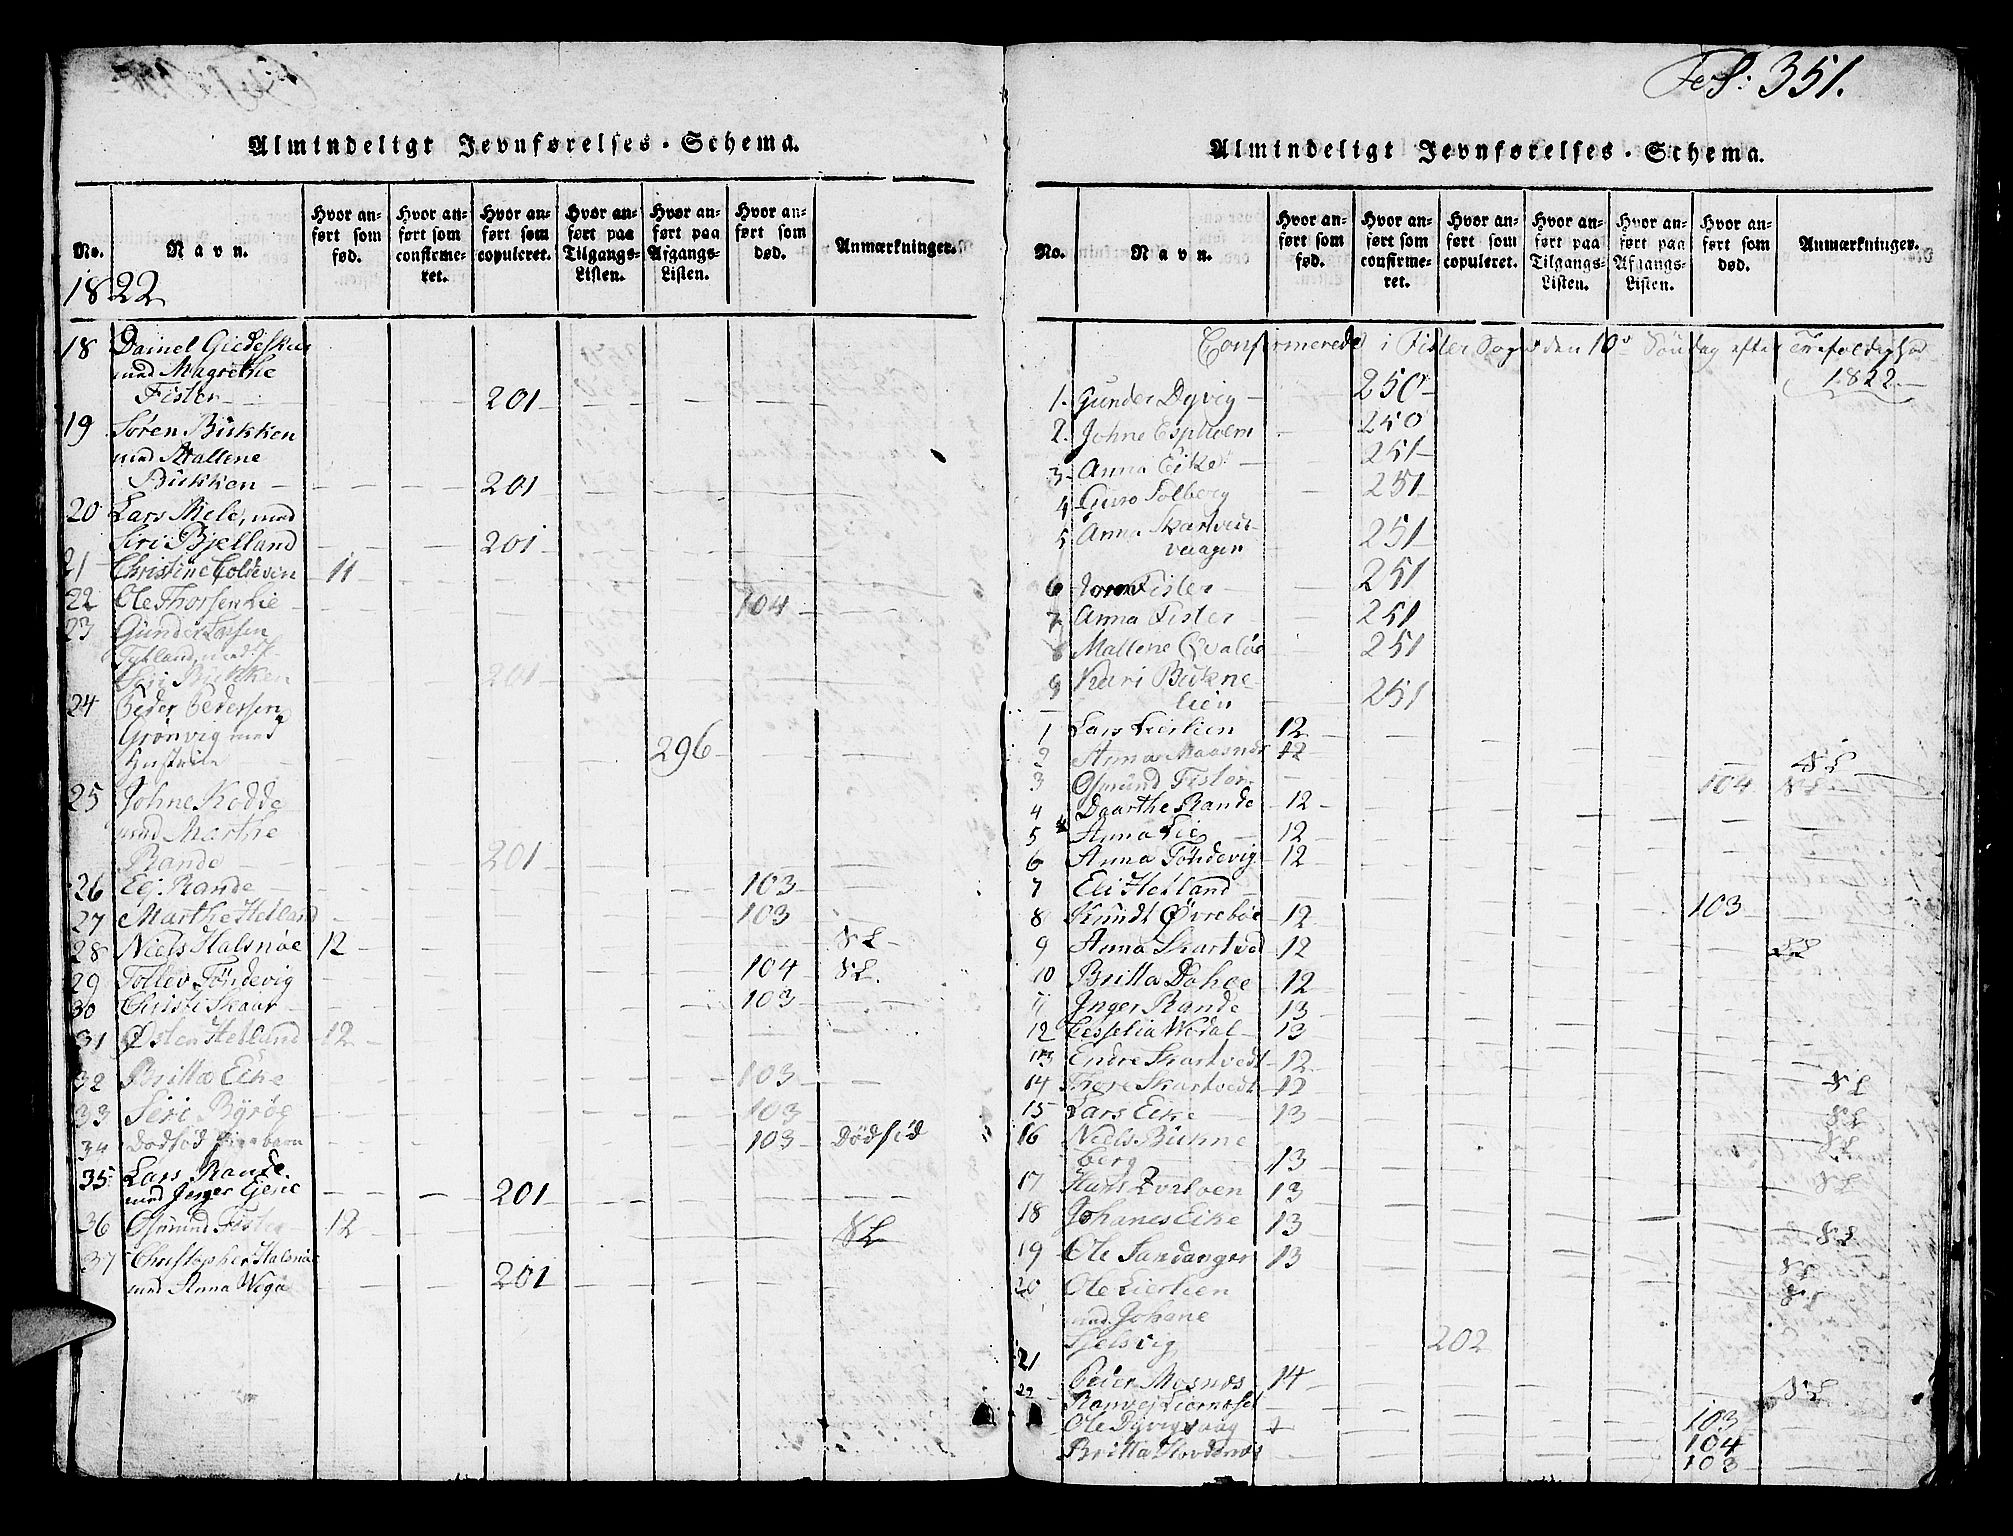 Almindeligt Jevnførelses-Schema.
No.
Navn.
Hvor anført som fød.
Hvor anført som confirmeret.
Hvor anført som copuleret.
Hvor anført paa Tilgangs-Listen.
Hvor anført paa Afgangs-Listen.
Hvor anført som død.
Anmærkninger.
1822
18 Dainel Giedeskier
med Magrethe
Fister 201
19 Søren Bukken
med Mallene
Bukken 201
20 Lars Mele, med
Siri Bjelland 201
21 Christine Coldevin 11
22 Ole Thorsen Lie 104
23 Gunder
med
Siri Bukken 201
24 Peder Pedersen
Grønvig med
Hustrue 296
25 Johne Kodde
med Marthe
Rande 201
26 Ej. Rande 103
27 Marthe Hetland 103
28 Niels Halsnøe 12 NL
29 Tollev Tøndevig 104 NL.
30 Christi Skaar 103
31 Østen Hetland 12
32 Britta Eike 103
33 Siri Byrøe 103
34 Dødfød Pigebarn 103 Dødfød
35 Lars Rande
med Inger 201
36 Osmund Fister 12 NL
37 Christopher Halsnøe
med Anna Wega 201
Fol: 351.
Almindeligt Jevnførelses-Schema.
No.
Navn.
Hvor anført som fød.
Hvor anført som confirmeret.
Hvor anført som copuleret.
Hvor anført paa Tilgangs-Listen.
Hvor anført paa Afgangs-Listen.
Hvor anført som død.
Anmærkninger.
Confirmerede i Fister Sogn den 10de Søndag efter Trefoldighed
1822
1. Gunder Dyvig 250
2. Johne Espholm 250
3. Anna Eike 251
4 Guro Solberg 251
5 Anna Skartveit
vaagen 251
6 Fister 251
7 Anna Fister 251
8 Mallene Qvaløe 251
9 Kari Bukne
lien 251
1 Lars Lierlien 12
2 Anna Maasnes 12 NL
3 Osmund Fister 104 NL
4 Daarthe Rande 12
5 Anna Lie 12
6 Anna Tøndevig 12
7 Eli Hetland 103
8 Knudt Øvrebøe 12
9 Anna Skartved 12
10 Britta Dahle 12
11 Inger Rande 13
12 Wodal 13
13 Endre Skartvedt 12
14 Tore Skartvedt 12 NL
15 Lars Eike 13 NL
16 Niels Buhne
berg 13 NL
17 Hans 13 NL
18 Johanes Eike 13 NL
19 Ole Sandanger 13 NL
20 Ole Lierlien
med Johane
Hjelsvig 202
21 Peder Mosnæs 14 NL
22 Ranvej 103
Ole Dyvigvaag 104
Britta 103